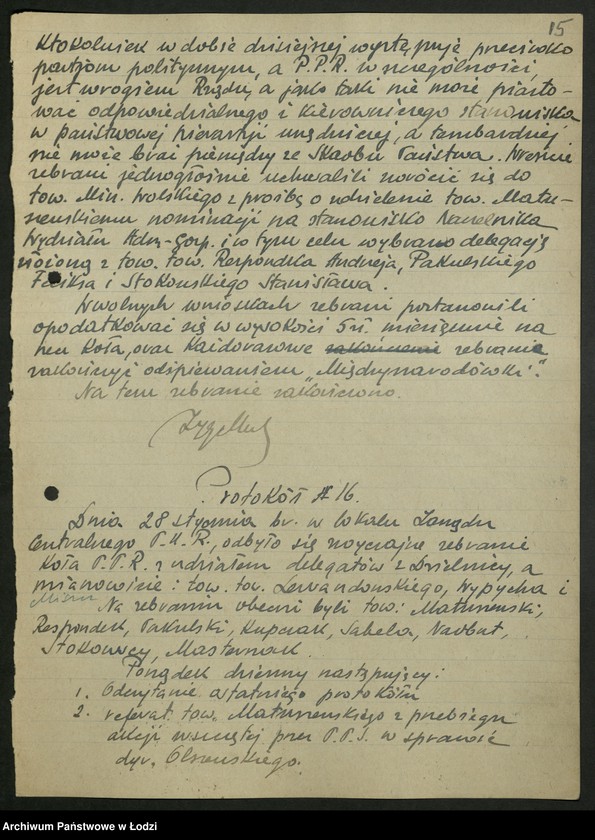 15
Ktokolwiek w dobie dzisiejszej występuje przeciwko
partjom politycznym, a P.P.R. w szczególności,
jest wrogiem Rządu, a jako taki nie może piasto-
wać odpowiedzialnego i kierowniczego stanowiska
w państwowej hierarchji urzędniczej, a tembardziej
nie może brać pieniędzy ze Skarbu Państwa. Wreszcie
zebrani jednogłośnie uchwalili zwrócić się do
tow. Min. Wolskiego z prośbą o udzielenie tow. Matu-
szewskiemu nominacji na stanowisko Naczelnika
Wydziału Adm-Gosp. i w tym celu wybrano delegację
złożoną z tow. tow. Respondka Andrzeja, Pakulskiego
Feliksa i Stokowskiego Stanisława.
W wolnych wnioskach zebrani postanowili
opodatkować się w wysokości 5 zł. miesięcznie na
rzecz Koła, oraz każdorazowe zakończenie zebranie
zakończyć odśpiewaniem „Międzynarodówki".
Na tem zebranie zakończono.
Protokół # 16.
Dnia 28 stycznia br. w lokalu Zarządu
Centralnego P.U.R., odbyło się zwyczajne zebranie
Koła P.P.R. z udziałem delegatów z Dzielnicy, a
mianowicie: tow. tow. Lewandowskiego, Wypycha i
Na zebraniu obecni byli tow: Matuszewski,
Respondek, Pakulski, Kupczak, Sabela, Narbut,
Stokowscy, Masternak.
Porządek dzienny następujący:
1. Odczytanie ostatniego protokółu
2. referat tow. Matuszewskiego z przebiegu
akcji wszczętej przez P.P.S. w sprawie
dyr. Olszewskiego.
Archiwum Państwowe w Łodzi